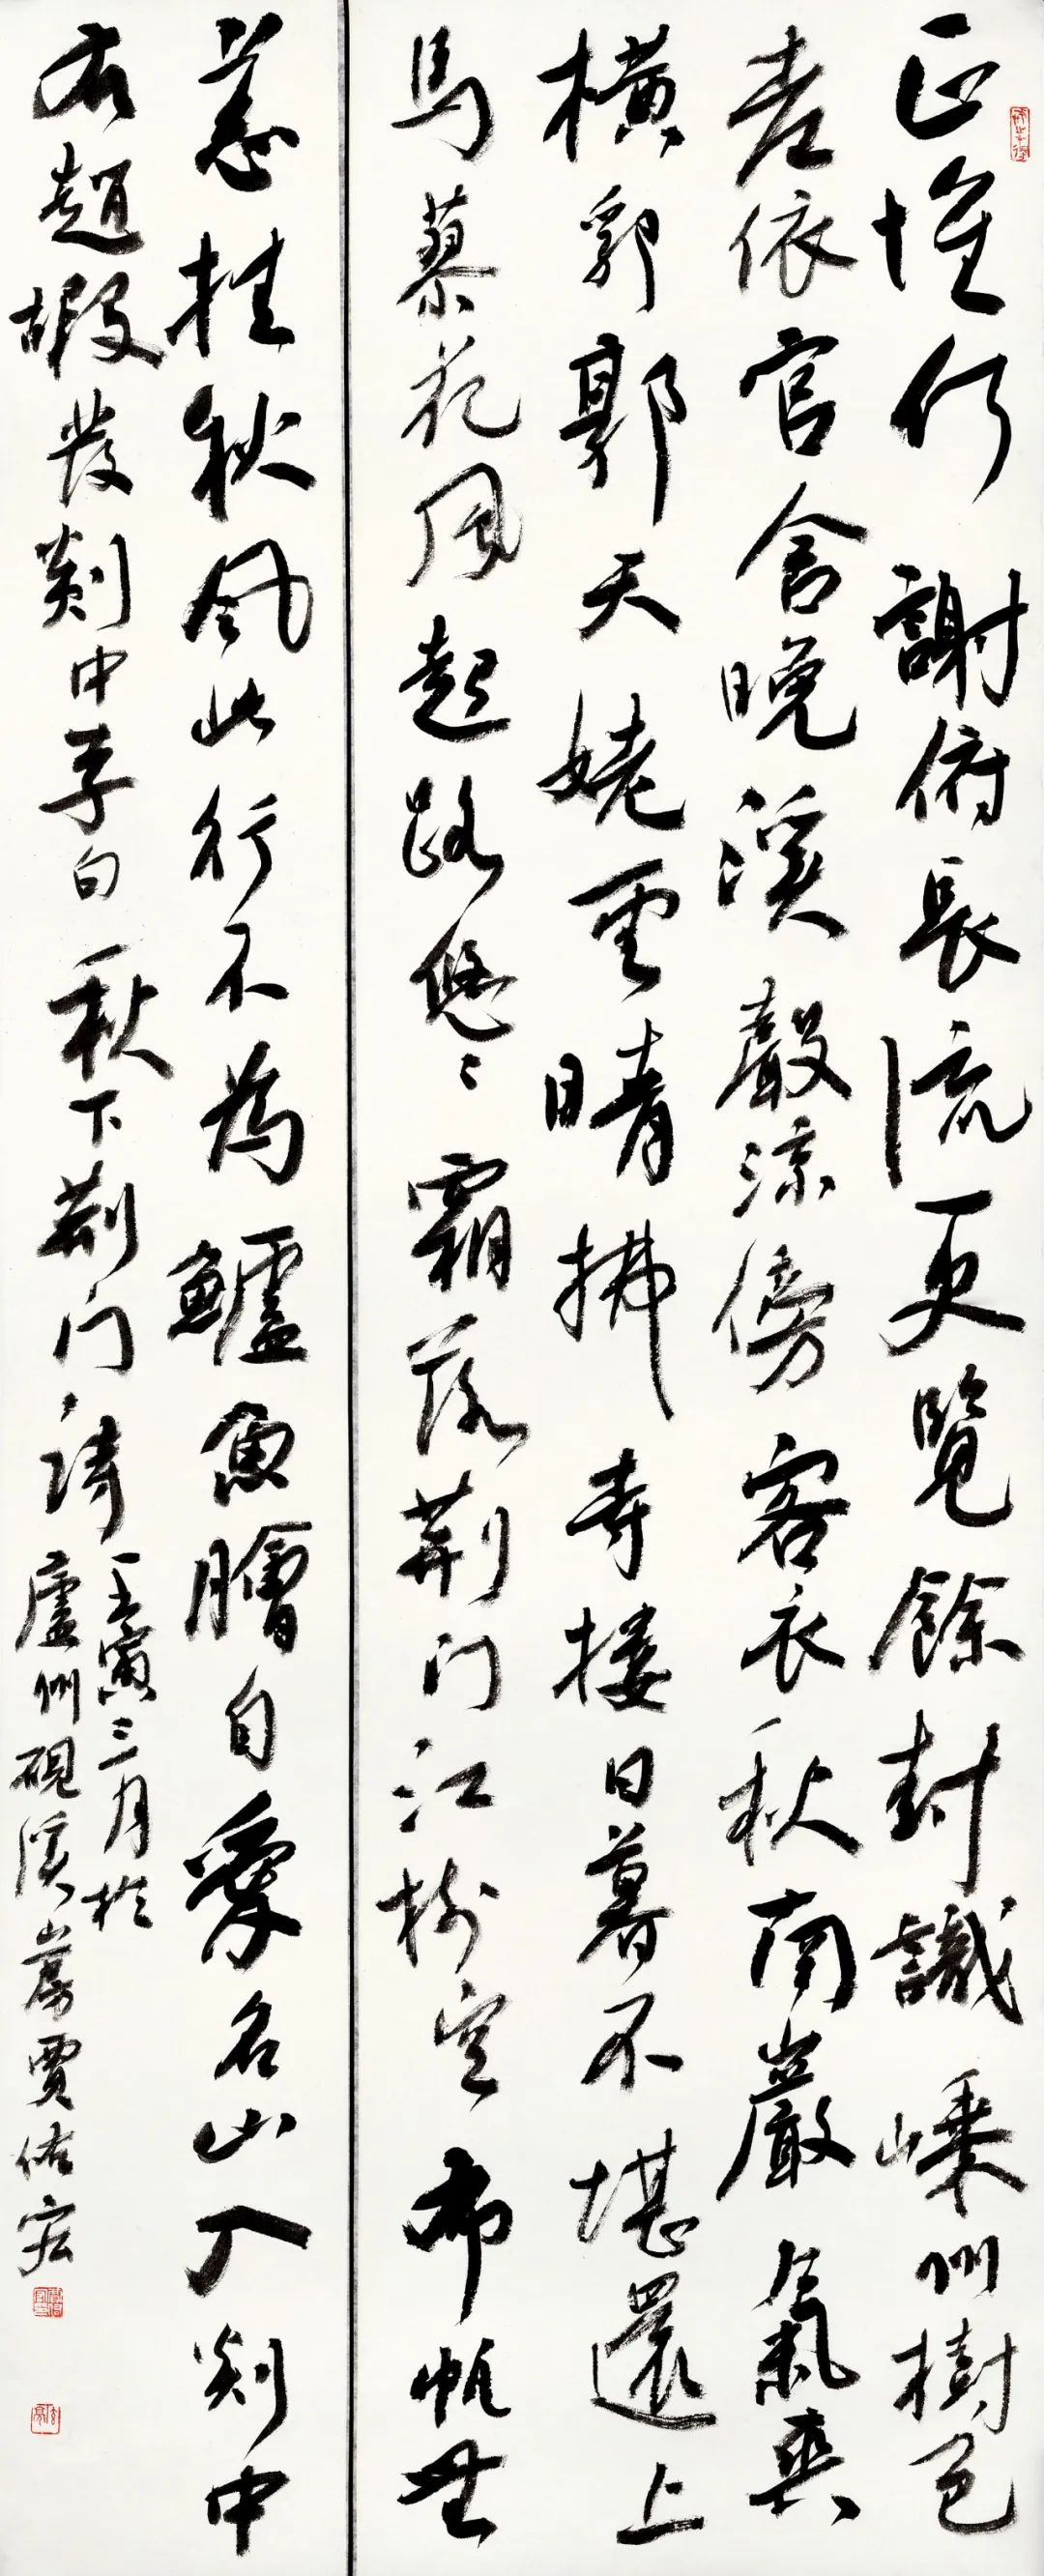 正懷何謝俯長流更覽餘封識嵊州樹色
老依官舍晚溪聲涼傍客衣秋南巖氣爽
橫郛郭天姥雲晴拂寺樓日暮不堪還上
馬蓼花風起路悠〻霜落荆门江樹空布帆無
恙挂秋風此行不為鱸魚膾自愛名山入剡中
右趙嘏發剡中李白秋下荆门詩
壬寅三月於
廬州硯溪山房賈佑宏